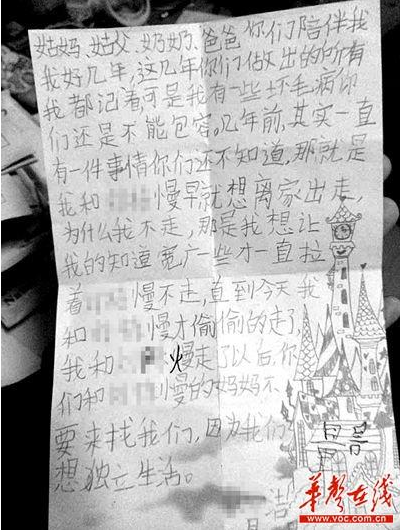 姑妈、姑父、奶奶、爸爸你们陪伴我
我好几年,这几年你们做出的所有
我都记着可是我有一些坏毛病你
们还是不能包容。几年前,其实一直
有一件事情你们还不知道,那就是
我和 慢早就想离家出走,
为什么我不走,那是我想让
我的知道宽广一些才一直拉
着 慢不走,直到今天我
和 慢才偷偷的走了,
我和 慢走了以后你
们和 慢的妈妈不
要来找我们,因为我们
想独立生活。
华声在线
www.voc.com.cn